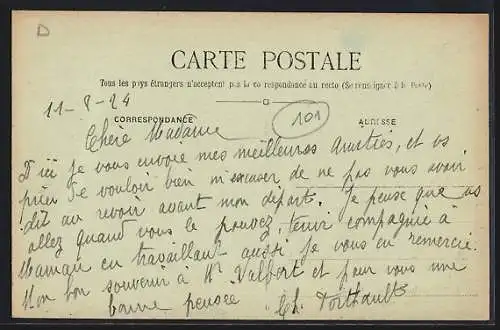 D
CARTE POSTALE
Tous les pays étrangers n'acceptent pas la correspondance au recto (Se renseigner à la Poste)
11-8-24
CORRESPONDANCE
101
ADRESSE
Chère Madame
D'ici je vous envoie mes meilleures Amitiés, et vs
prier de vouloir bien m'excuser de ne pas vous avoir
dit au revoir avant mon départ. Je pense que vs
allez quand vous le pouvez, tenir compagnie à
Maman en travaillant aussi je vous en remercie.
Mon bon souvenir à Mr Valbert et pour vous une
bonne pensée
Ch.